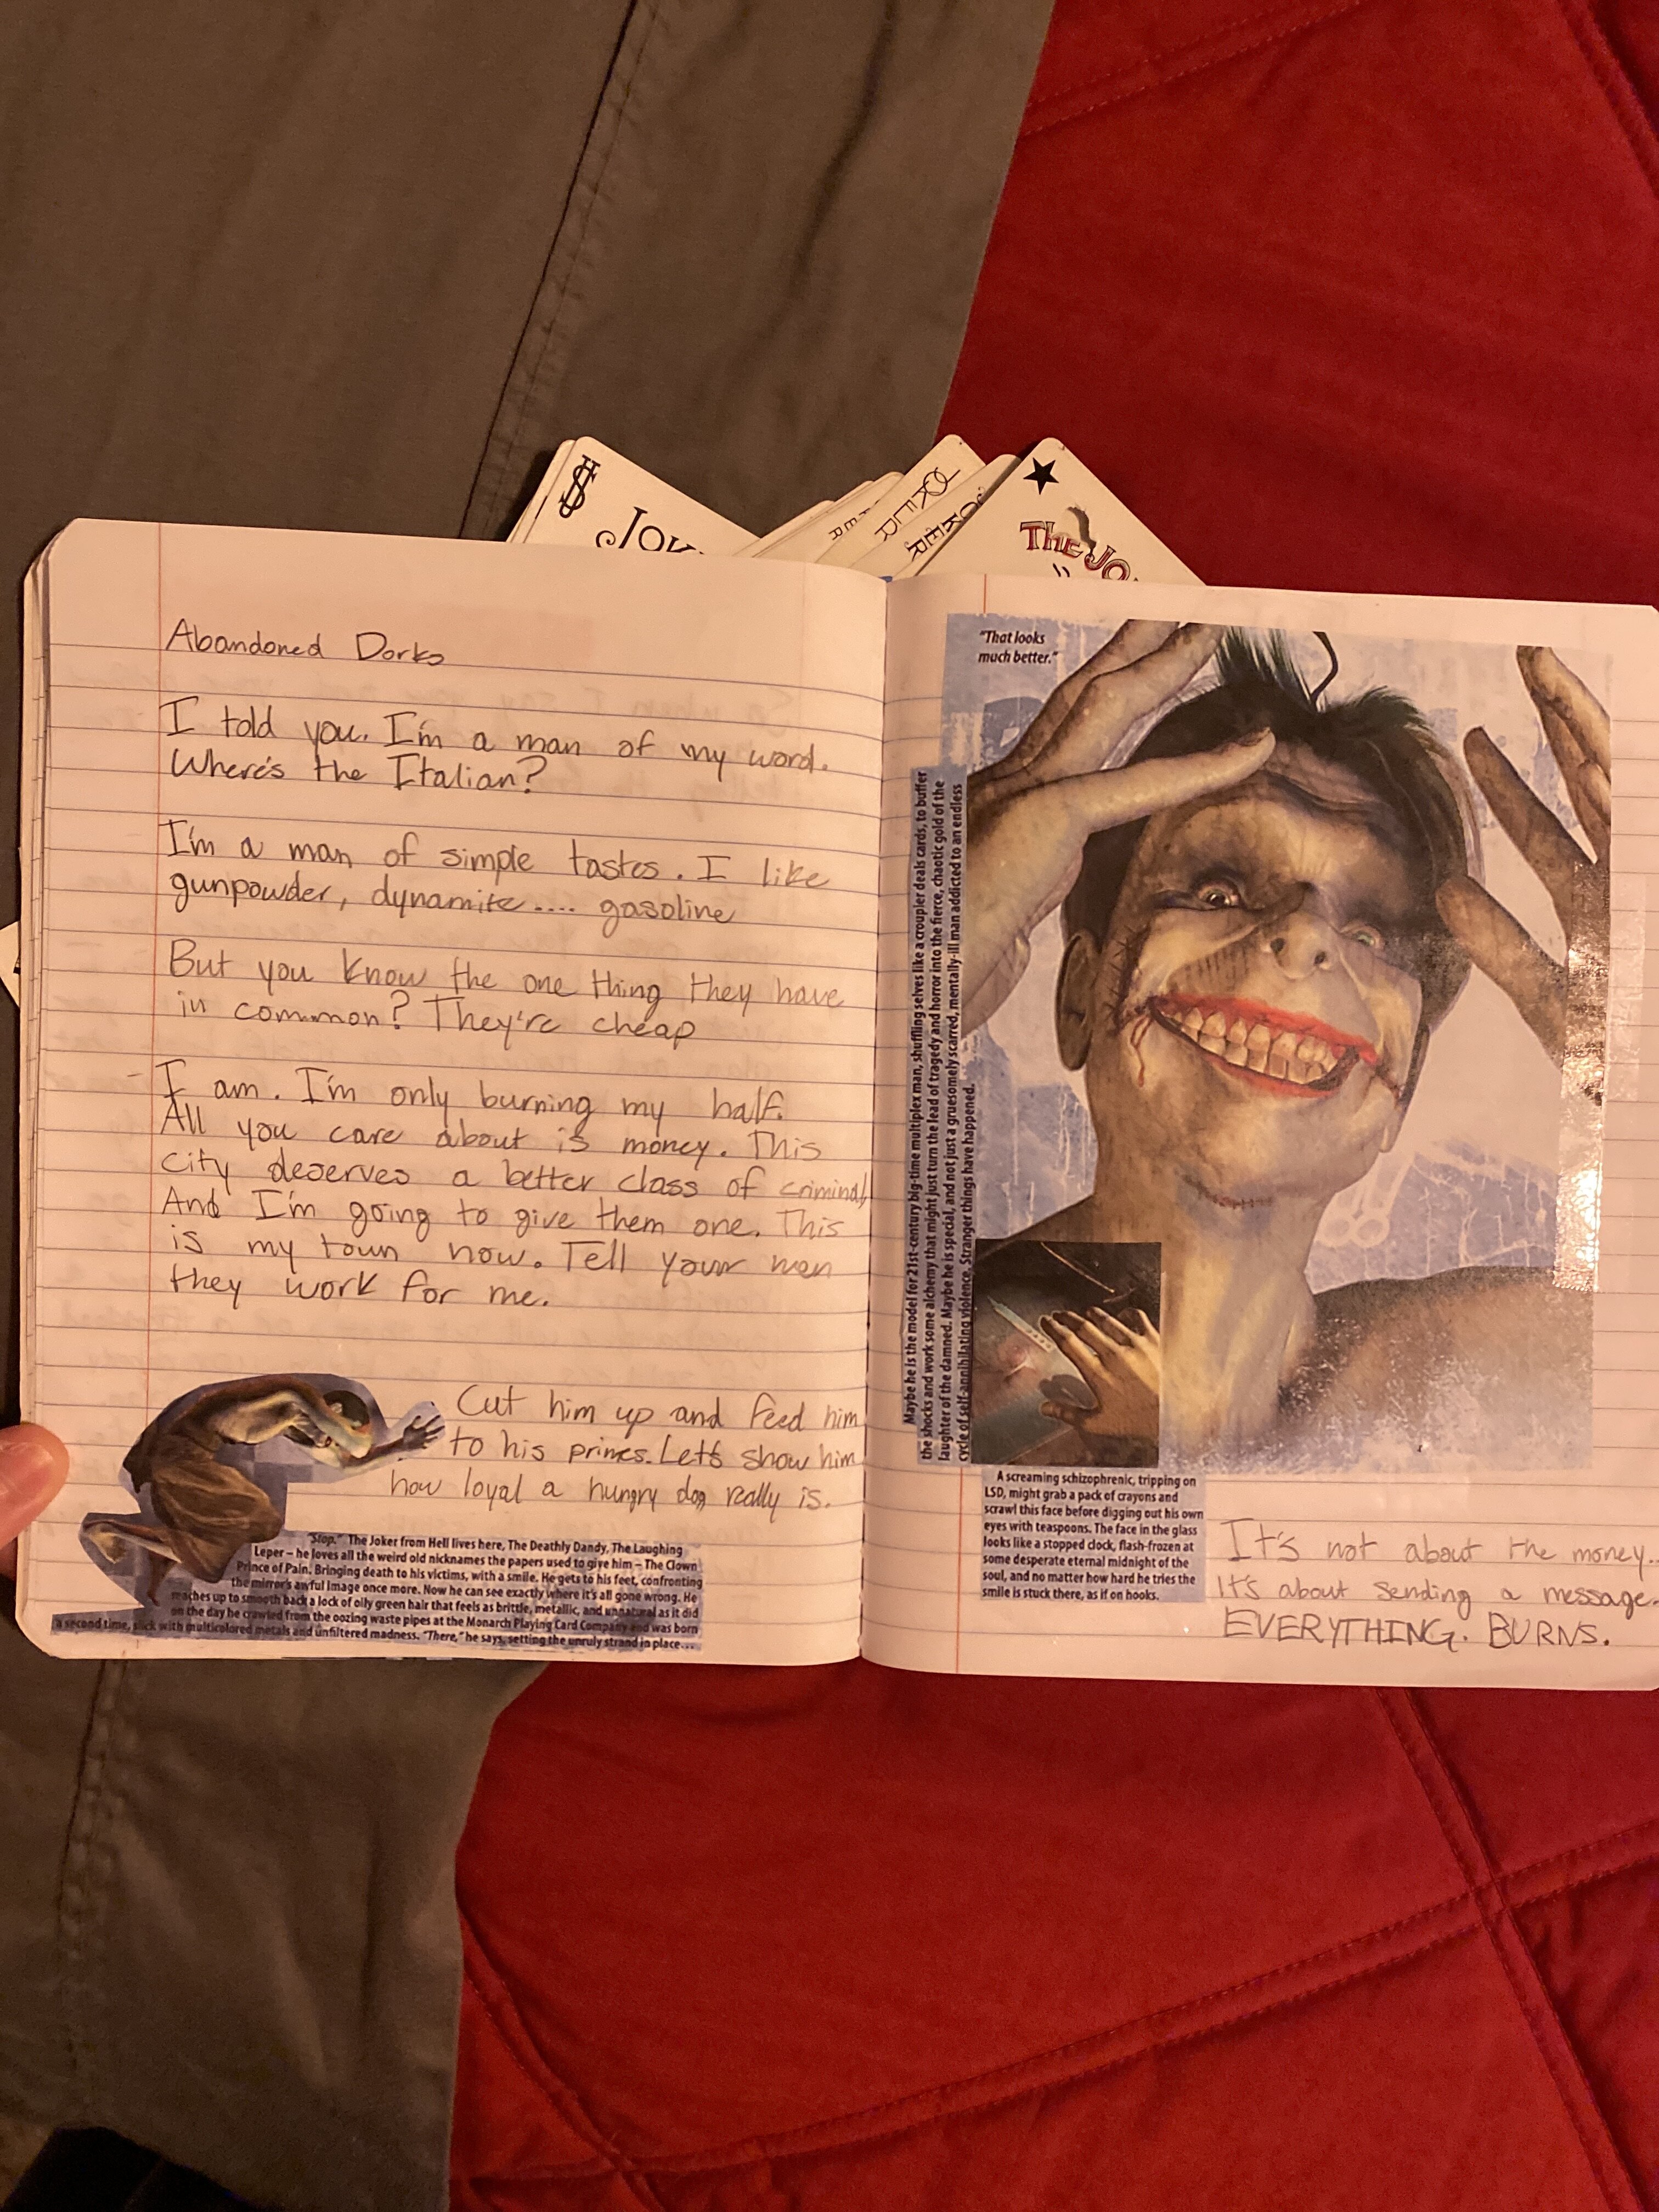 $
JOK
JOKER
JOKER
★
The JO
Abandoned Dorks
I told you. I'm a man of my word.
Where's the Italian?
I'm a man of simple tastes. I like
gunpowder, dynamite.... gasoline
But you know the one thing they have
in common? They're cheap
I am. I'm only burning my half.
All you care about is money. This
city deserves a better class of criminal,
And I'm going to give them one. This
is my town now. Tell your men
they work for me.
Cut him up and feed him
to his princes. Let's show him
how loyal a hungry dog really is.
"Stop." The Joker from Hell lives here, The Deathly Dandy, The Laughing
Leper – he loves all the weird old nicknames the papers used to give him – The Clown
Prince of Pain. Bringing death to his victims, with a smile. He gets to his feet, confronting
the mirror's awful image once more. Now he can see exactly where it's all gone wrong. He
reaches up to smooth back a lock of oily green hair that feels as brittle, metallic, and unnatural as it did
on the day he crawled from the oozing waste pipes at the Monarch Playing Card Company and was born
a second time, slick with multicolored metals and unfiltered madness. "There," he says, setting the unruly strand in place...
"That looks
much better."
Maybe he is the model for 21st-century big-time multiplex man, shuffling selves like a croupier deals cards, to buffer
the shocks and work some alchemy that might just turn the lead of tragedy and horror into the fierce, chaotic gold of the
laughter of the damned. Maybe he is special, and not just a gruesomely scarred, mentally-ill man addicted to an endless
cycle of self-annihilating violence. Stranger things have happened.
A screaming schizophrenic, tripping on
LSD, might grab a pack of crayons and
scrawl this face before digging out his own
eyes with teaspoons. The face in the glass
looks like a stopped clock, flash-frozen at
some desperate eternal midnight of the
soul, and no matter how hard he tries the
smile is stuck there, as if on hooks.
It's not about the money..
It's about sending a message.
EVERYTHING. BURNS.